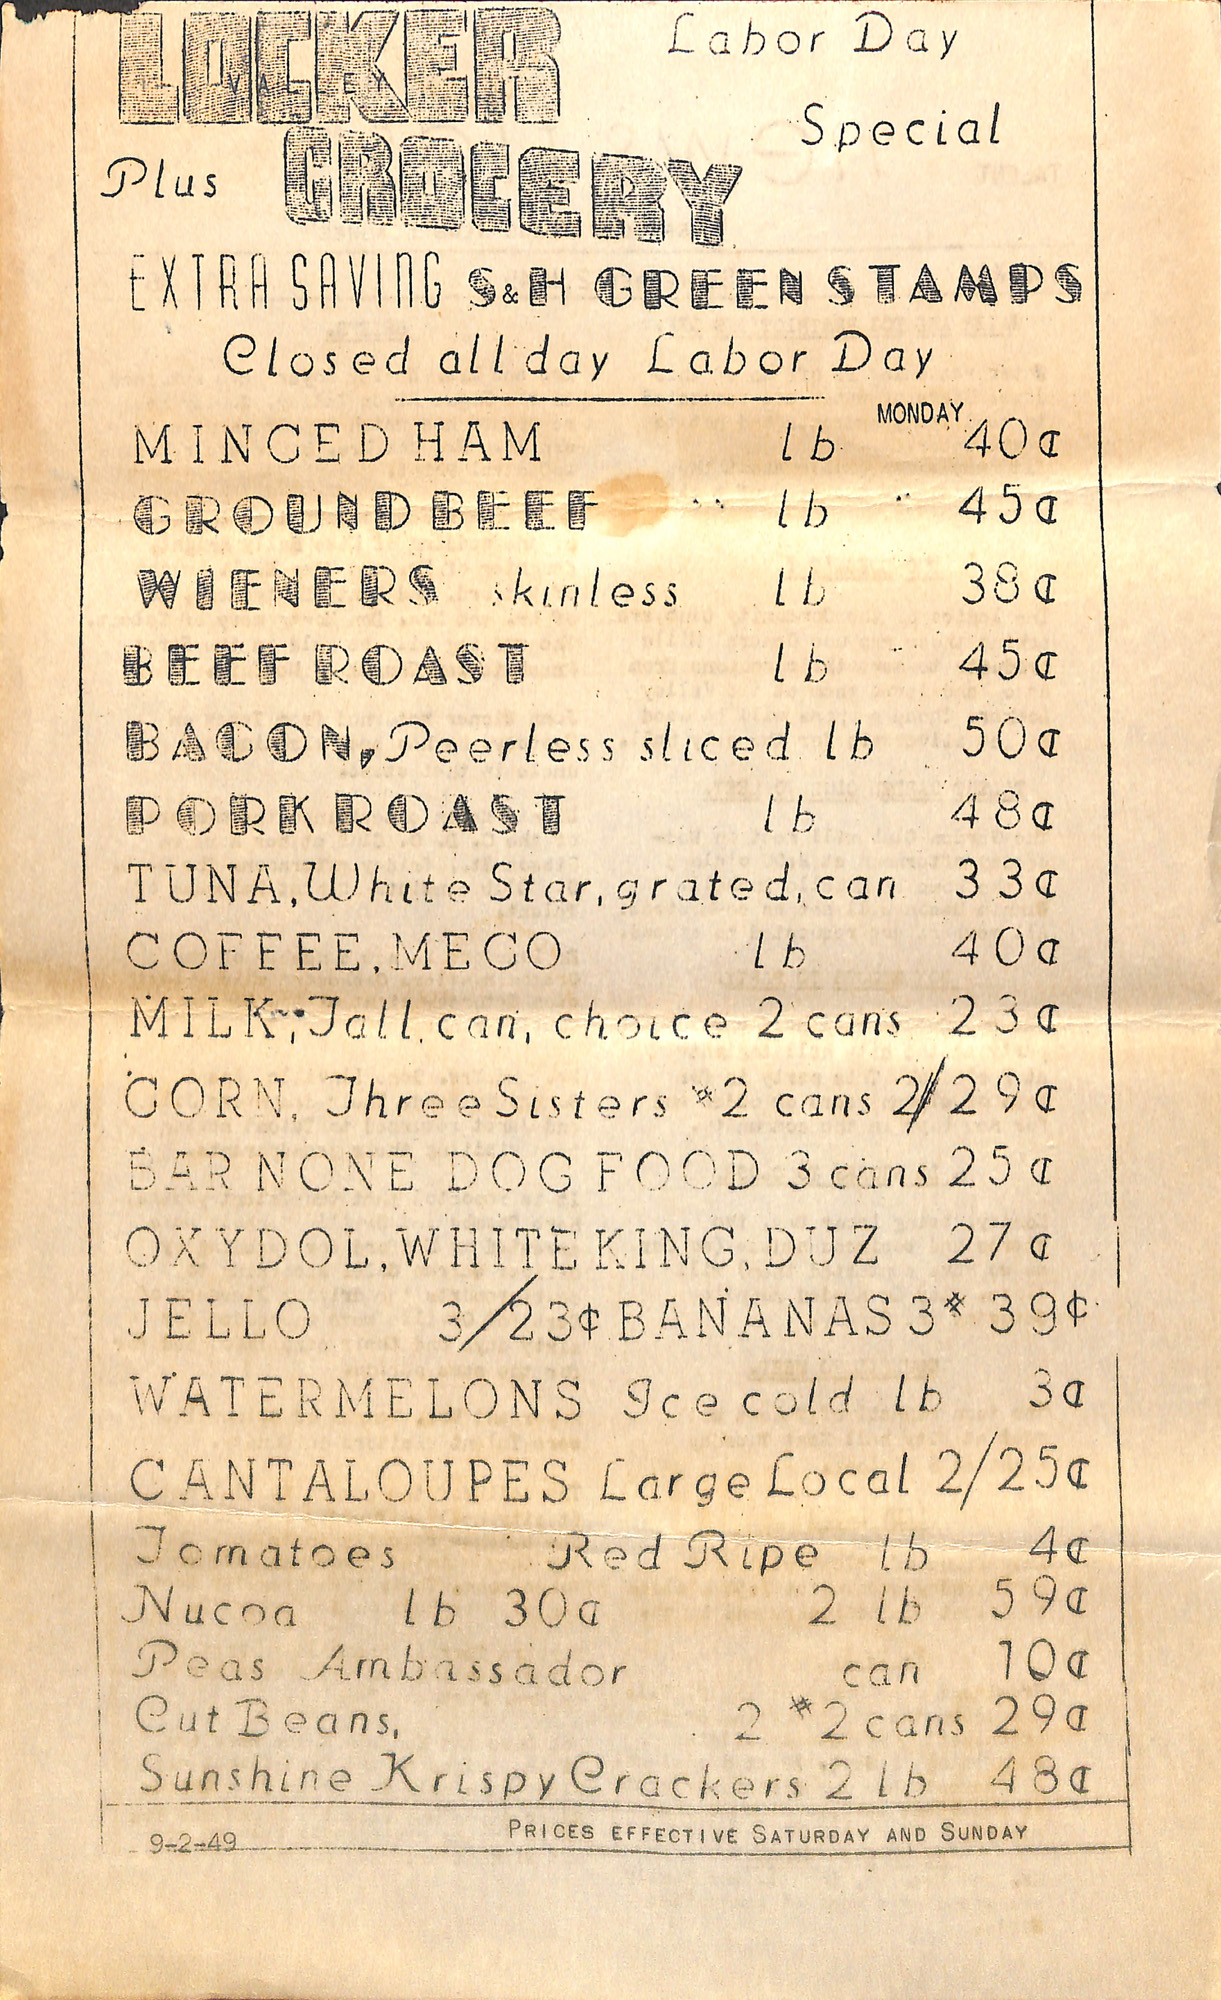 LOCKER
VALLEY
Labor Day
Special
Plus GROCERY
EXTRA SAVING S&H GREEN STAMPS
Closed all day Labor Day
MONDAY
MINCED HAM lb 40¢
GROUND BEEF " lb " 45¢
WIENERS skinless lb 38¢
BEEF ROAST lb 45¢
BACON, Peerless sliced lb 50¢
PORK ROAST lb 48¢
TUNA, White Star, grated, can 33¢
COFFEE, MECO lb 40¢
MILK, Tall can, choice 2 cans 23¢
CORN, Three Sisters #2 cans 2/29¢
BAR NONE DOG FOOD 3 cans 25¢
OXYDOL, WHITE KING, DUZ 27¢
JELLO 3/23¢ BANANAS 3# 39¢
WATERMELONS Ice cold lb 3¢
CANTALOUPES Large Local 2/25¢
Tomatoes Red Ripe lb 4¢
Nucoa lb 30¢ 2 lb 59¢
Peas Ambassador can 10¢
Cut Beans, 2 #2 cans 29¢
Sunshine Krispy Crackers 2 lb 48¢
9-2-49 PRICES EFFECTIVE SATURDAY AND SUNDAY